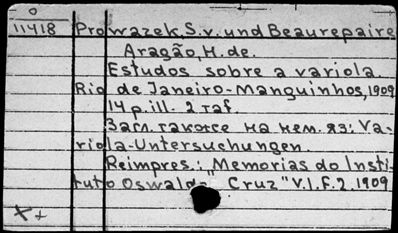 0
11418 Prowazek, S.v. und Beaurepaire
Aragão, H. de.
Estudos sobre a variola.
Rio de Janeiro-Manguinhos, 1909
14 p. ill. 2 taf.
Загл. также на нем. яз: Va-
riola-Untersuchungen.
Reimpres.: "Memorias do Insti-
tuto Oswaldo Cruz" V.I.F.2.1909
X+